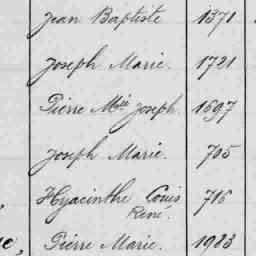 Jean Baptiste 1371
Joseph Marie. 1721
Pierre Mie Joseph. 1697
Joseph Marie. 705
Hyacinthe Louis 716
René.
Pierre Marie. 1983